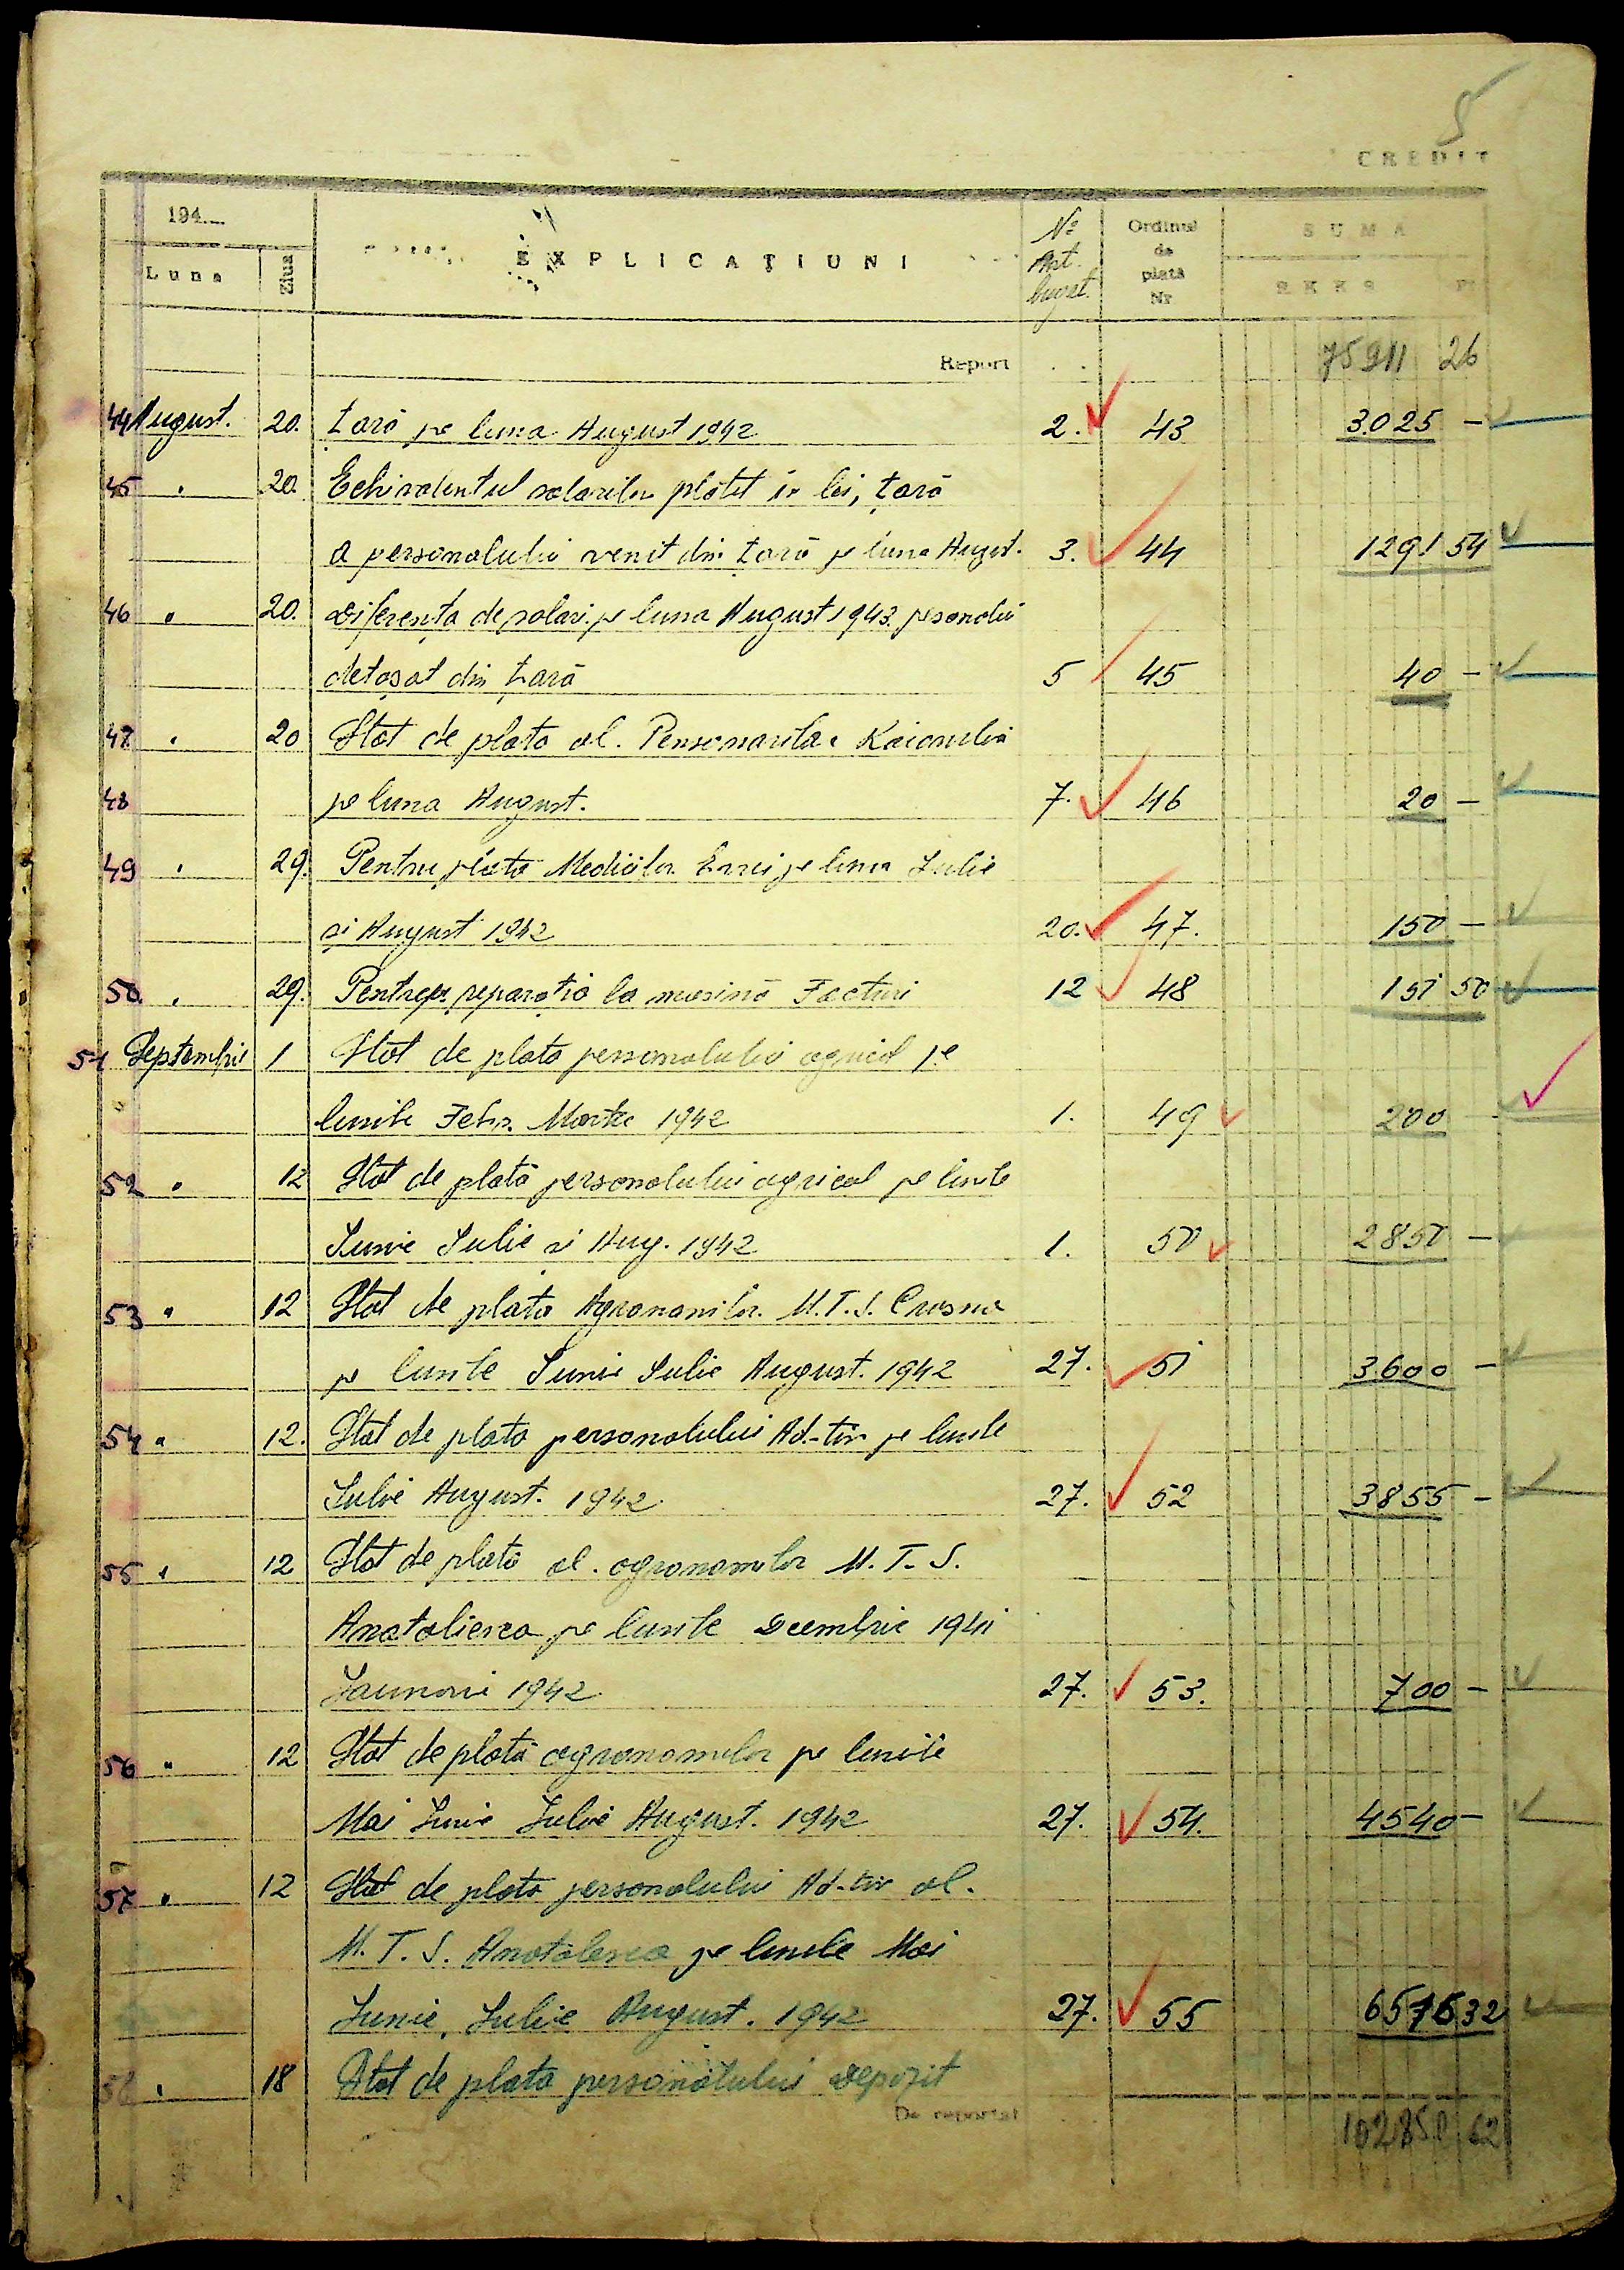 5
CREDIT
194...
Luna
Ziua
EXPLICAŢIUNI
No Art. buget.
Ordinul de plată Nr
SUMA
RKKS
Report 75911 26
44 August. 20. ţară pe luna August 1942 2. 43 3.025 -
45 " 20. Echivalentul salariilor plătit în lei, ţară
a personalului venit din ţară pe luna August. 3. 44 1291 54
46 " 20. Diferenţa de salari pe luna August 1943 personalui
detaşat din ţară 5 45 40 -
47 " 20 Stat de plata al. Pensionarilor
48 pe luna August. 7. 46 20 -
49 " 29. Pentru plata Medicilor pe luna Iulie
şi August 1942 20. 47. 150 -
50 " 29. reparaţia la maşină Facturi 12 48 151 50
51 Septembrie 1 Stat de plata personalului agricol pe
lunile Febr. Martie 1942 1. 49 200
52 " 12 Stat de plată personalului agricol pe lunile
Iunie Iulie si Aug. 1942 1. 50 2850 -
53 " 12 Stat de plata Agronomilor. M.T.S.
pe lunile Iunie Iulie August. 1942 27. 51 3.600 -
54 " 12. Stat de plata personalului Ad-tiv pe lunile
Iulie August. 1942 27. 52 3855 -
55 " 12 Stat de plată al. agronomilor M.T.S.
Anatolievca pe lunile Decembrie 1941
Ianuarie 1942 27. 53. 700 -
56 " 12 Stat de plată agronomilor pe lunile
Mai Iunie Iulie August. 1942 27. 54. 4540 -
57 " 12 Stat de plata personalului Ad-tiv al.
M.T.S. Anatolevca pe lunile Mai
Iunie, Iulie August. 1942 27. 55 6576 32
58 " 18 Stat de plata personalului Depozit
De reportat 62